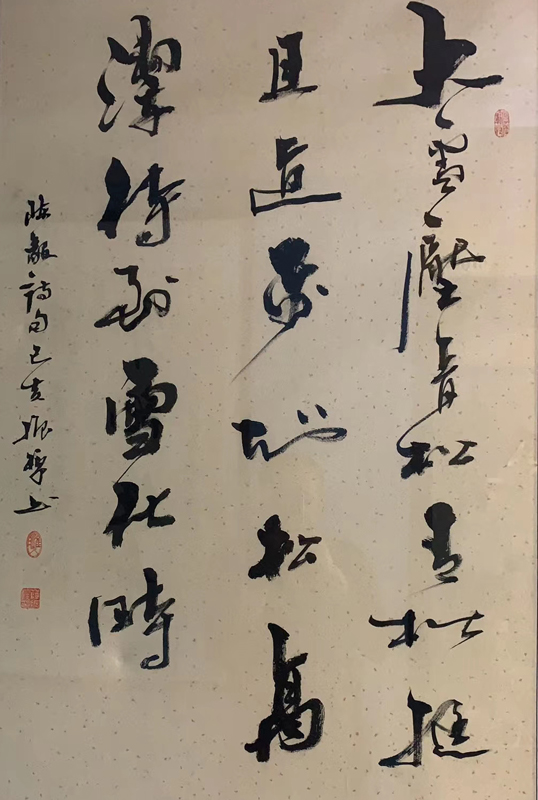 大雪壓青松青松挺
且直要知松高
潔待到雪化時
陳毅詩句己亥书